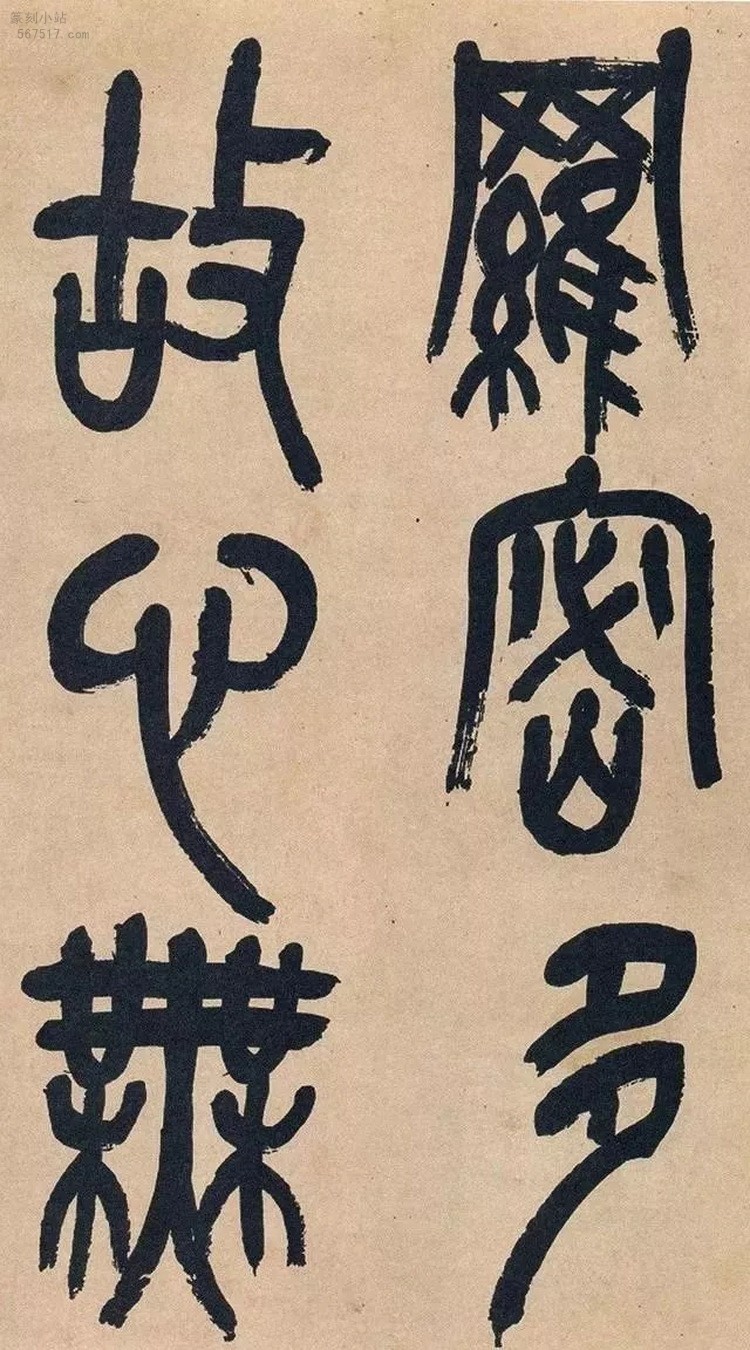 篆刻小站
567517.com
羅密多
故心無